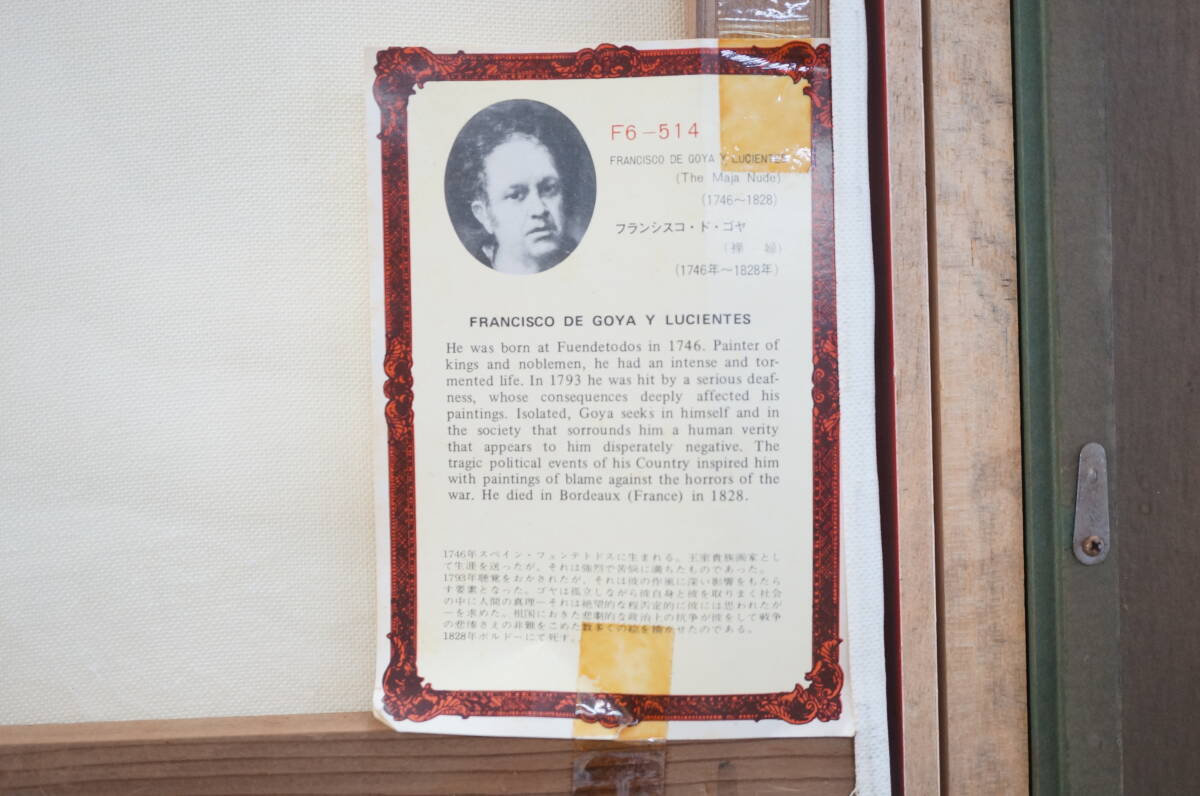 F6-514
FRANCISCO DE GOYA Y LUCIENTES
(The Maja Nude)
(1746〜1828)
フランシスコ・ド・ゴヤ
(裸 婦)
(1746年〜1828年)
FRANCISCO DE GOYA Y LUCIENTES
He was born at Fuendetodos in 1746. Painter of
kings and noblemen, he had an intense and tor-
mented life. In 1793 he was hit by a serious deaf-
ness, whose consequences deeply affected his
paintings. Isolated, Goya seeks in himself and in
the society that sorrounds him a human verity
that appears to him disperately negative. The
tragic political events of his Country inspired him
with paintings of blame against the horrors of the
war. He died in Bordeaux (France) in 1828.
1746年スペイン・フェンテトドスに生まれる。王室貴族画家とし
て生涯を送ったが、それは強烈で苦悩に満ちたものであった。
1793年聴覚をおかされたが、それは彼の作風に深い影響をもたら
す要素となった。ゴヤは孤立しながら彼自身と彼を取りまく社会
の中に人間の真理ーそれは絶望的な程否定的に彼には思われたが
ーを求めた。祖国におきた悲劇的な政治上の抗争が彼をして戦争
の悲惨さえの非難をこめた数多くの絵を描かせたのである。
1828年ボルドーにて死す。